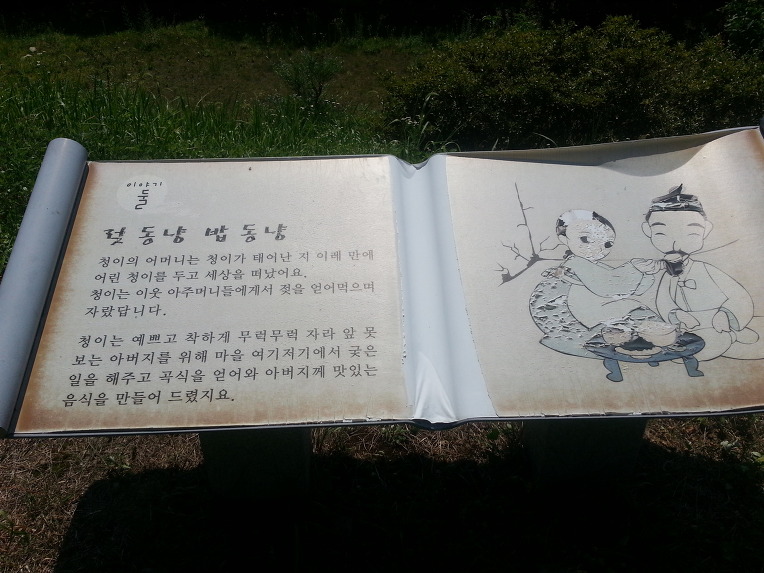 이야기
둘
젖 동냥 밥 동냥
청이의 어머니는 청이가 태어난 지 이레 만에
어린 청이를 두고 세상을 떠났어요.
청이는 이웃 아주머니들에게서 젖을 얻어먹으며
자랐답니다.
청이는 예쁘고 착하게 무럭무럭 자라 앞 못
보는 아버지를 위해 마을 여기저기에서 궂은
일을 해주고 곡식을 얻어와 아버지께 맛있는
음식을 만들어 드렸지요.